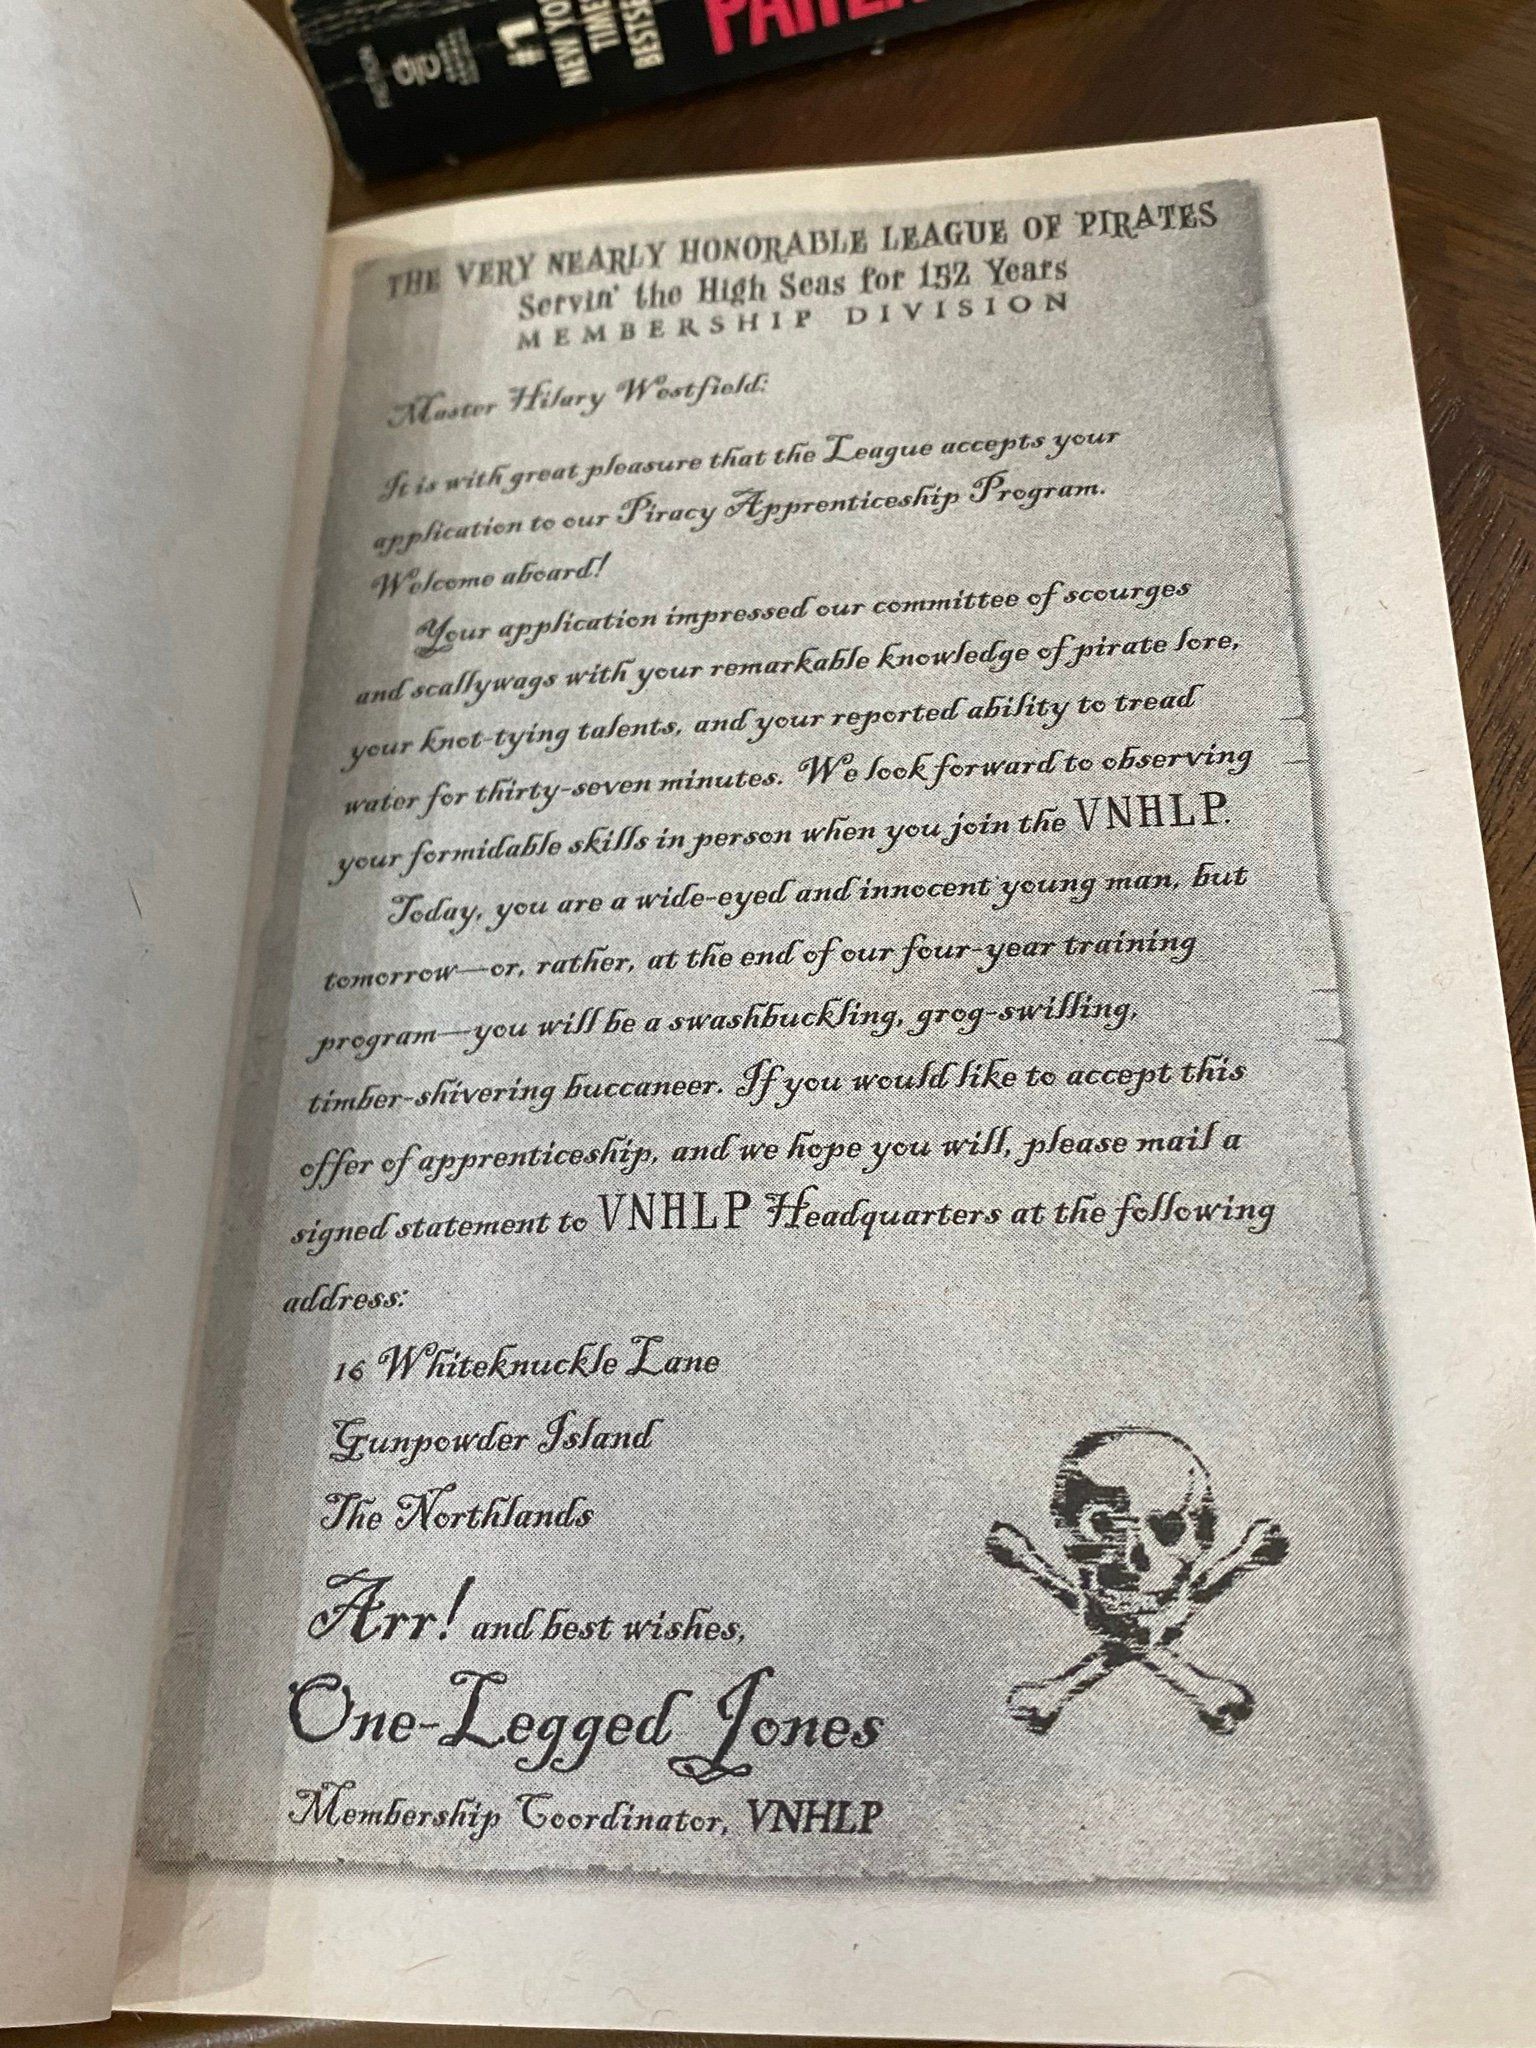 #1
NEW YO
TIME
BESTSE
THE VERY NEARLY HONORABLE LEAGUE OF PIRATES
Servin' the High Seas for 152 Years
MEMBERSHIP DIVISION
Master Hilary Westfield:
It is with great pleasure that the League accepts your
application to our Piracy Apprenticeship Program.
Welcome aboard!
Your application impressed our committee of scourges
and scallywags with your remarkable knowledge of pirate lore,
your knot-tying talents, and your reported ability to tread
water for thirty-seven minutes. We look forward to observing
your formidable skills in person when you join the VNHLP.
Today, you are a wide-eyed and innocent young man, but
tomorrow—or, rather, at the end of our four-year training
program—you will be a swashbuckling, grog-swilling,
timber-shivering buccaneer. If you would like to accept this
offer of apprenticeship, and we hope you will, please mail a
signed statement to VNHLP Headquarters at the following
address:
16 Whiteknuckle Lane
Gunpowder Island
The Northlands
Arr! and best wishes,
One-Legged Jones
Membership Coordinator, VNHLP